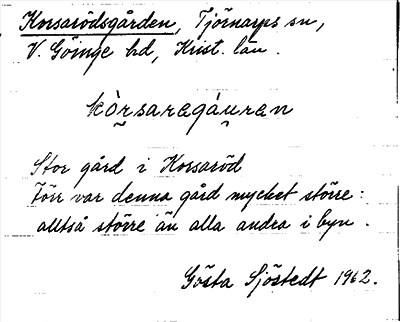 Korsarödsgården, Tjörnarps sn,
V. Göinge hd, Krist. län.
kòrsaragáuren
Stor gård i Korsaröd
Förr var denna gård mycket större:
alltså större än alla andra i byn.
Gösta Sjöstedt 1962.